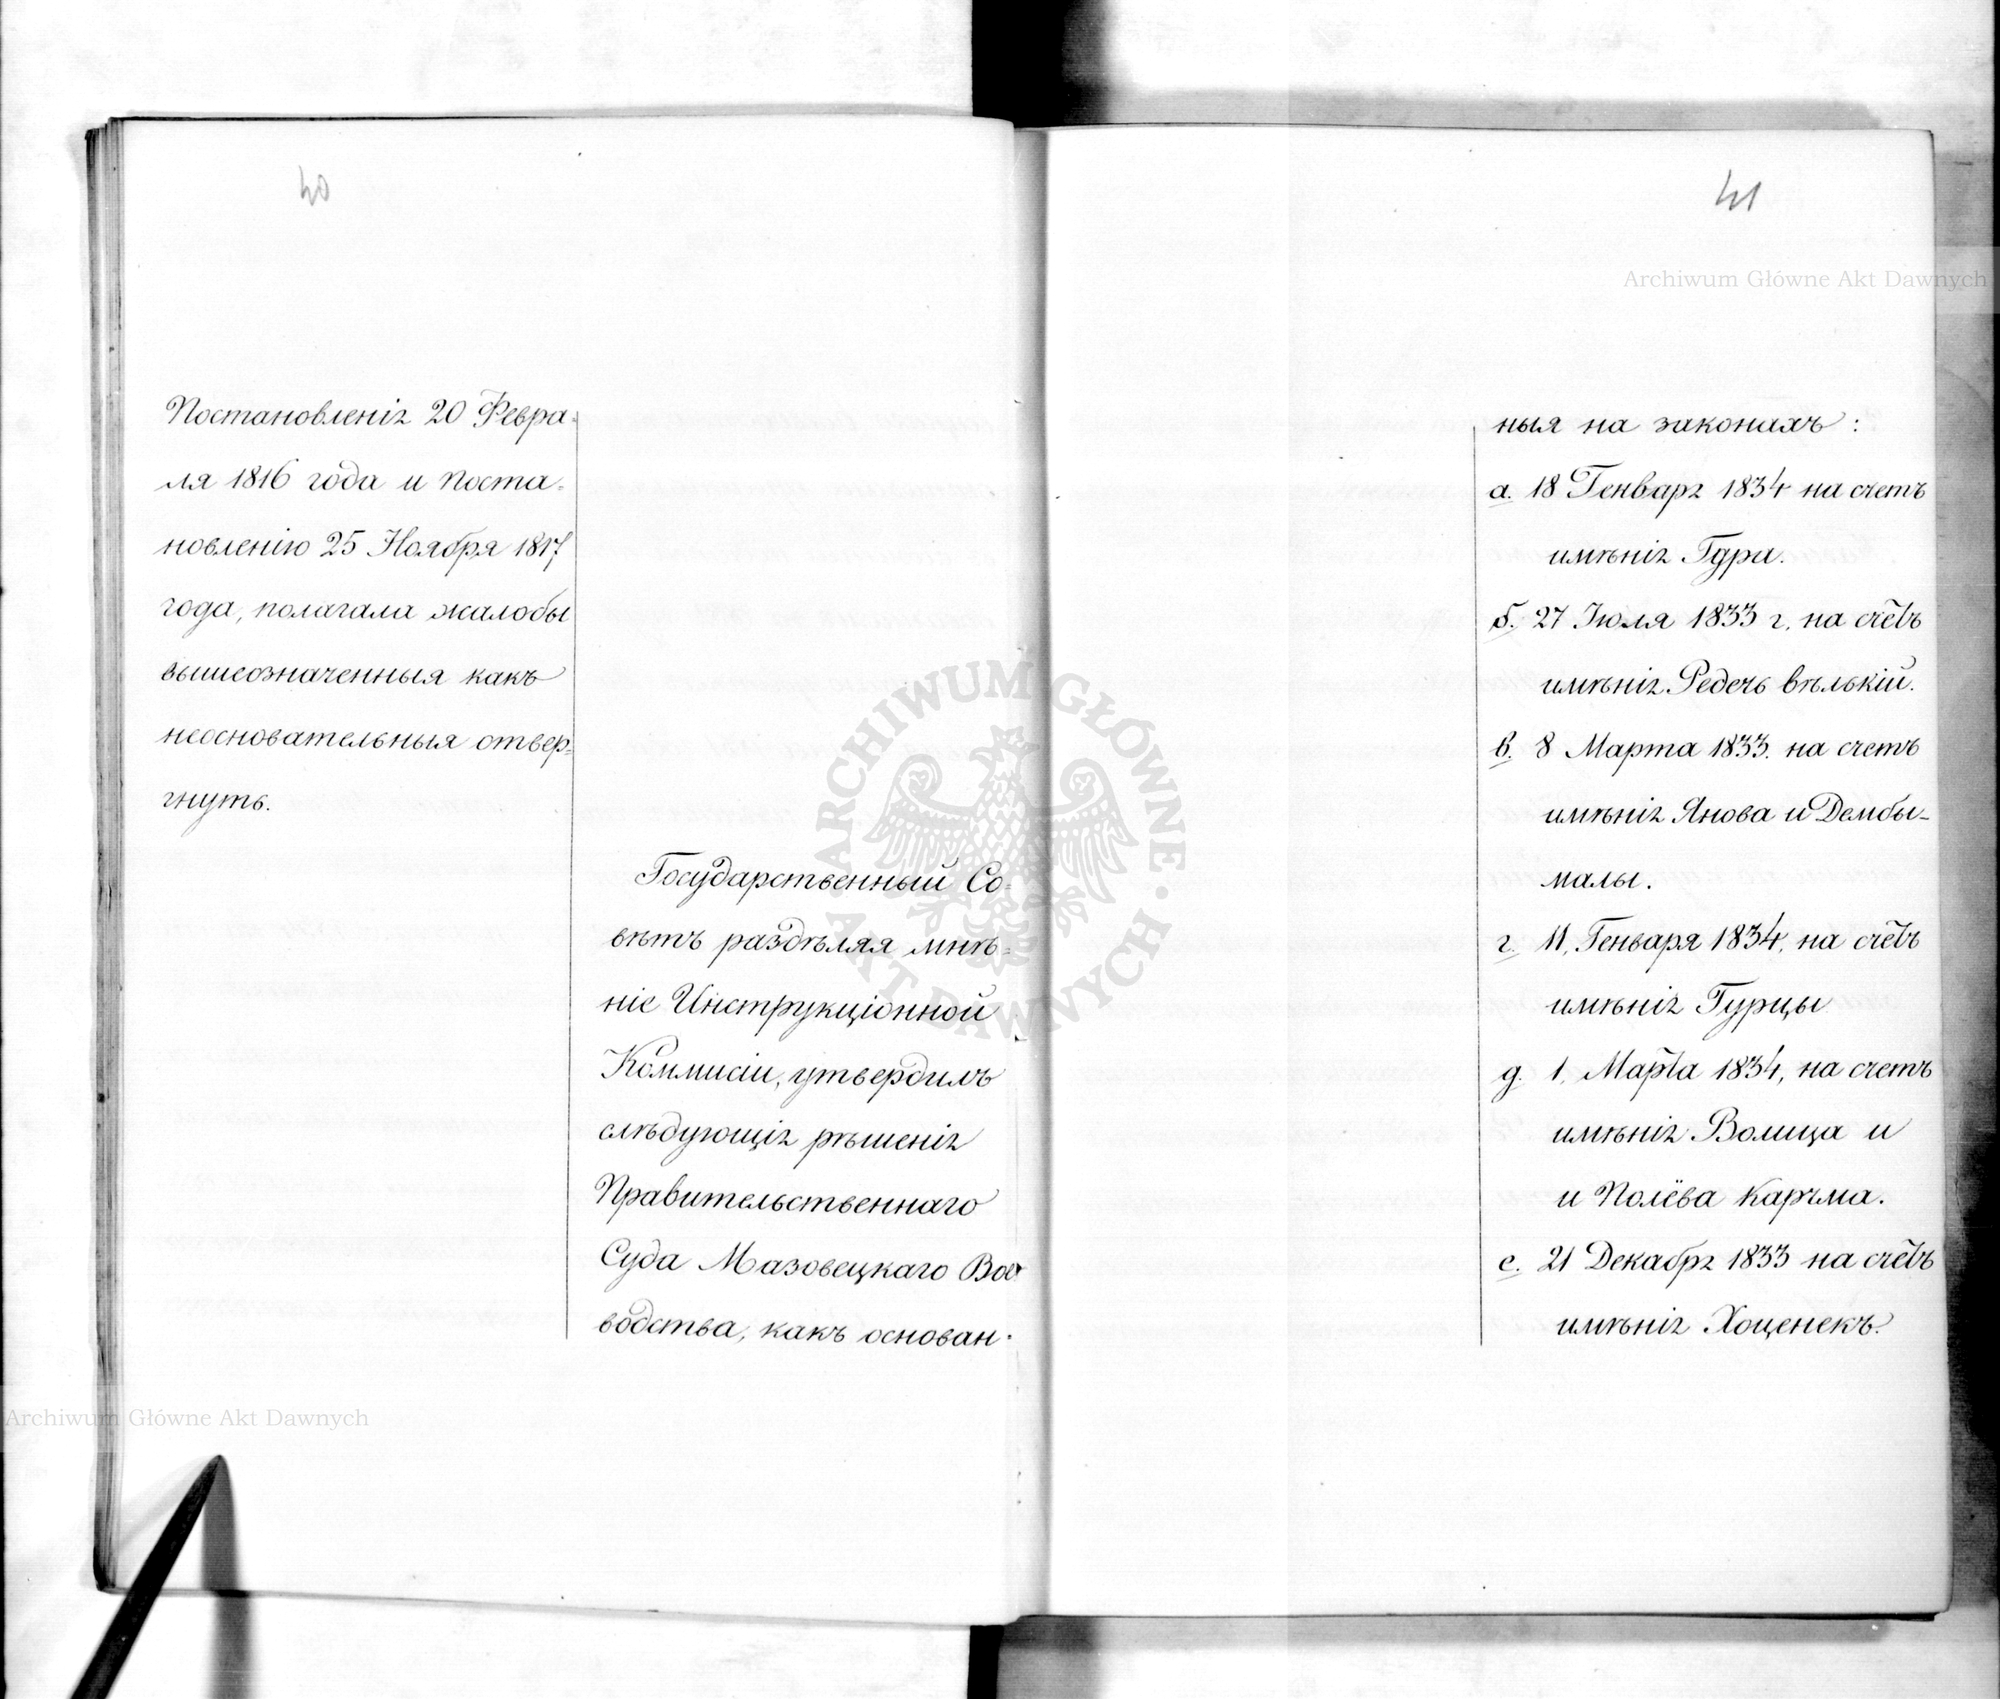 40
Постановленія 20 Февра-
ля 1816 года и поста-
новленію 25 Ноября 1817
года, полагала жалобы
вышеозначенныя какъ
неосновательныя отвер-
гнуть.
Государственный Со-
вѣтъ раздѣляя мнѣ-
ніе Инструкціонной
Коммисіи, утвердилъ
слѣдующія рѣшенія
Правительственнаго
Суда Мазовецкаго Вое
водства, какъ основан-
41
ныя на законахъ:
а. 18 Генваря 1834 на счетъ
имѣнія Гура.
б. 27 Іюля 1833 г. на счетъ
имѣнія Редечь вѣлькій.
в. 8 Марта 1833. на счетъ
имѣнія Янова и Дембы-
малы.
г. 11, Генваря 1834, на счетъ
имѣнія Гурцы
д. 1, Марта 1834, на счетъ
имѣнія Волица и
и Полёва Каръма.
е. 21 Декабря 1833 на счетъ
имѣнія Хоценекъ.
Archiwum Główne Akt Dawnych
Archiwum Główne Akt Dawnych
ARCHIWUM GŁÓWNE · AKT DAWNYCH ·